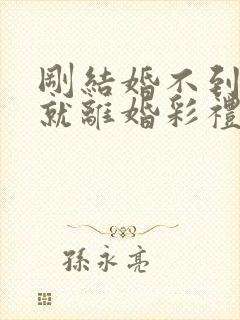 剛結婚不到
就離婚彩禮
孫永亮